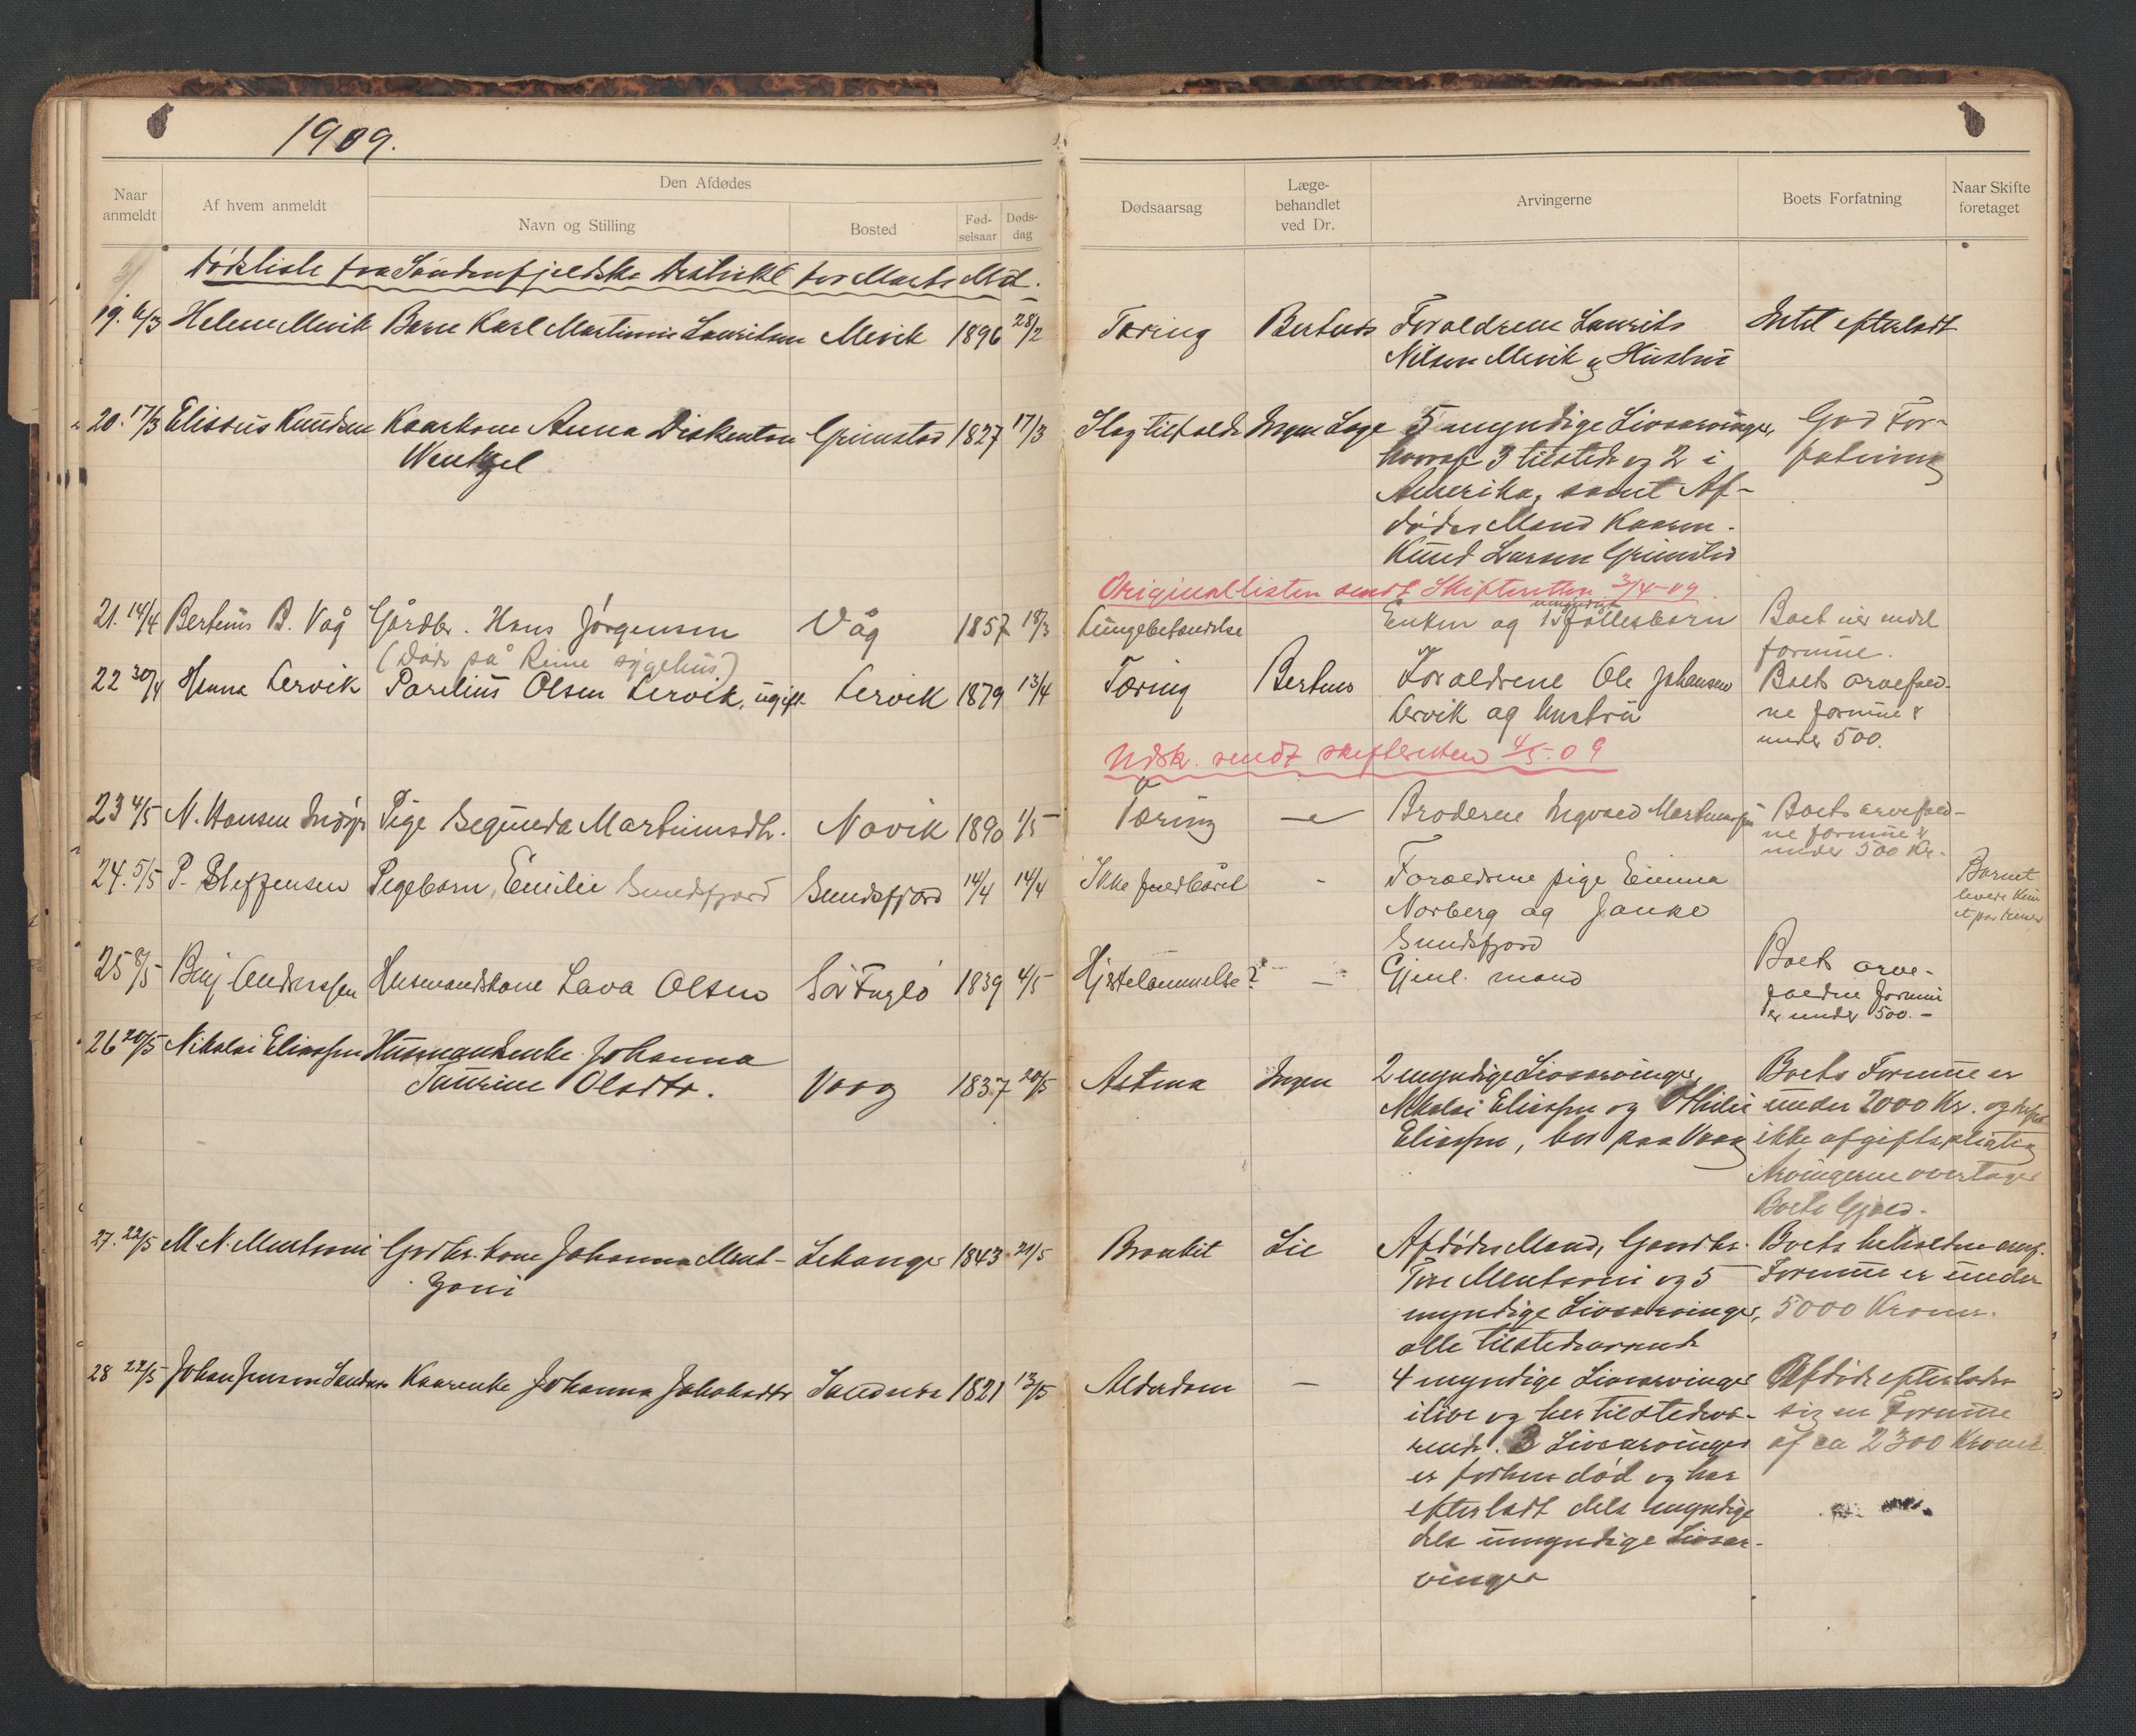 1909.
Naar anmeldt
Af hvem anmeldt
Den Afdødes
Navn og Stilling
Bosted
Fød-selsaar
Døds-dag
Dødsaarsag
Læge-behandlet ved Dr.
Arvingerne
Boets Forfatning
Naar Skifte foretaget
Dødsliste fra Søndenfjeldske Distrikt for Marts Md.
19. 6/3 Helene Mevik Barn Karl Martinus Lauritsen Mevik 1896 28/2 Tæring Forældrene Laurits Intet efterladt
Nilsen Mevik og Hustru
20. 17/3 Elisæus Knudsen Kaarkone Anna Grimstad 1827 17/3 Slagtilfælde Ingen Læge 5 myndige Livsarvinger, God For-
Wentzel hvoraf 3 tilstede og 2 i fatning
Amerika, samt Af-
dødes Mand Kaarm.
Knud Larsen Grimstad
Originallisten sendt Skifteretten 3/4-09.
21. 14/4 Berteus B. Våg Gårdbr. Hans Jørgensen Våg 1857 18/3 Lungebetændelse Enken og umyndige fællesbarn Boet uden
(Døde på Reine sygehus) formue.
22 30/4 Hanna Lervik Parelius Olsen Lervik, ugift Lervik 1879 13/4 Tæring Forældrene Ole Johansen Boets arvefald-
Lervik og hustru ne formue er
under 500.
Udskr. sendt skifteretten 4/5-09
23 4/5 N. Hansen Pige Martinusdtr. Novik 1890 1/5 Tæring — Broderen Ingvald Martinussen Boets arvefald-
ne formue er
under 500 Kr.
24. 5/5 P. Steffensen Pigebarn, Emilie Sundsfjord Sundsfjord 14/4 14/4 Ikke fuldbåret - Forældrene pige Emma Barnet
Norberg og levede kun
Sundsfjord et par timer
25 8/5 Benj Anderssen Husmandskone Lava Olsen Sør Fuglø 1839 4/5 Hjertelammelse? — Gjenl. mand Boets arve-
faldne formue
er under 500.-
26 20/5 Nikolai Eliassen Husmandsenke Johanna
Taurine Olsdtr. Vaag 1837 20/5 Astma Ingen 2 myndige Livsarvinger, Boets Formue er
Nikolai Eliassen og Othilie under 2000 Kr. og
Eliassen, bor paa Vaag ikke afgiftspligtig
Arvingerne overtager
Boets Gjæld.
27. 22/5 M. N. Mentzoni Gårdbr. kone Johanna Ment- 1843 21/5 Bronkit Lie Afdødes Mand, Gaardbr. Boets beholdne arvef.
zoni Mentzoni og 5 Formue er under
myndige Livsarvinger, 5000 Kroner.
alle tilstedeværende
28 22/5 Johan Jensen Kaarenke Johanna Jakobsdtr 1821 13/5 Alderdom — 4 myndige Livsarvinger Afdøde efterlader
ilive og her tilstedevæ- sig en Formue
rende. 3 Livsarvinger af ca 2300 Kroner
er forhen død og har
efterladt dels myndige
dels umyndige Livsar-
vinger